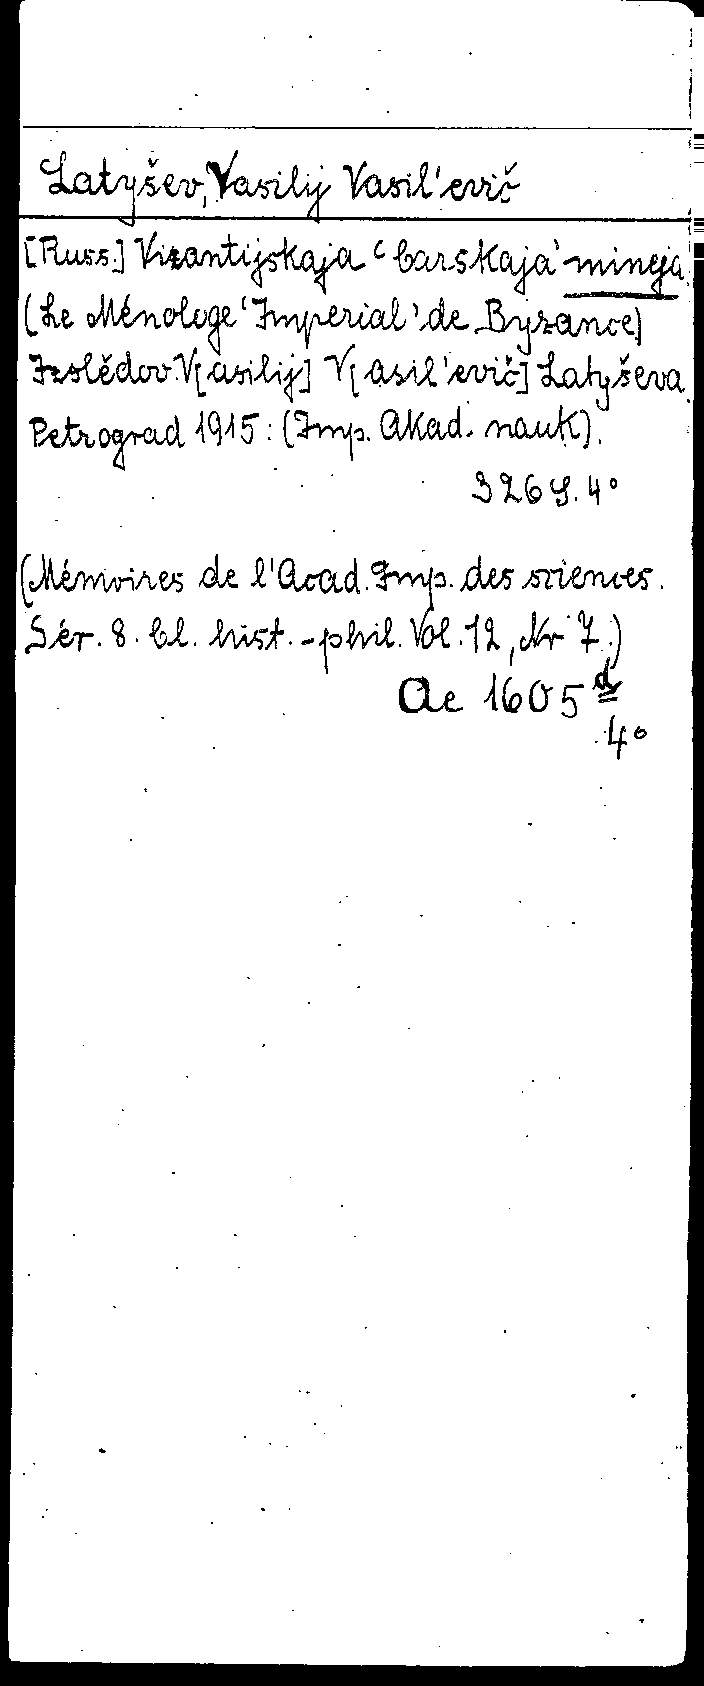 Latyšev, Vasilij Vasil'evič
[Russ.] Vizantijskaja 'Carskaja' mineja.
(Le Ménologe 'Impérial' de Byzance)
Izslědov. V[asilij] V[asil'evič] Latyševa.
Petrograd 1915: (Imp. Akad. nauk).
326 S. 4°
(Mémoires de l'Acad. Imp. des sciences.
Sér. 8. Cl. hist.-phil. Vol. 12, Nr 7.)
Ac 1605 d
4°